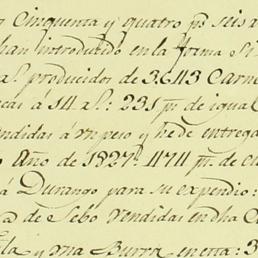 Cinquenta y quatro ps seis a
han introducido en la forma si
a.s producidos de 3643 Carne
cas á 14 a.s: 231 ps de igual
endidas á un peso y he de entrega
o Año de 1827: 4711 ps de cu
á Durango para su expendio:
a de Sebo vendidas en dha C
la y una Burra en etta: 3